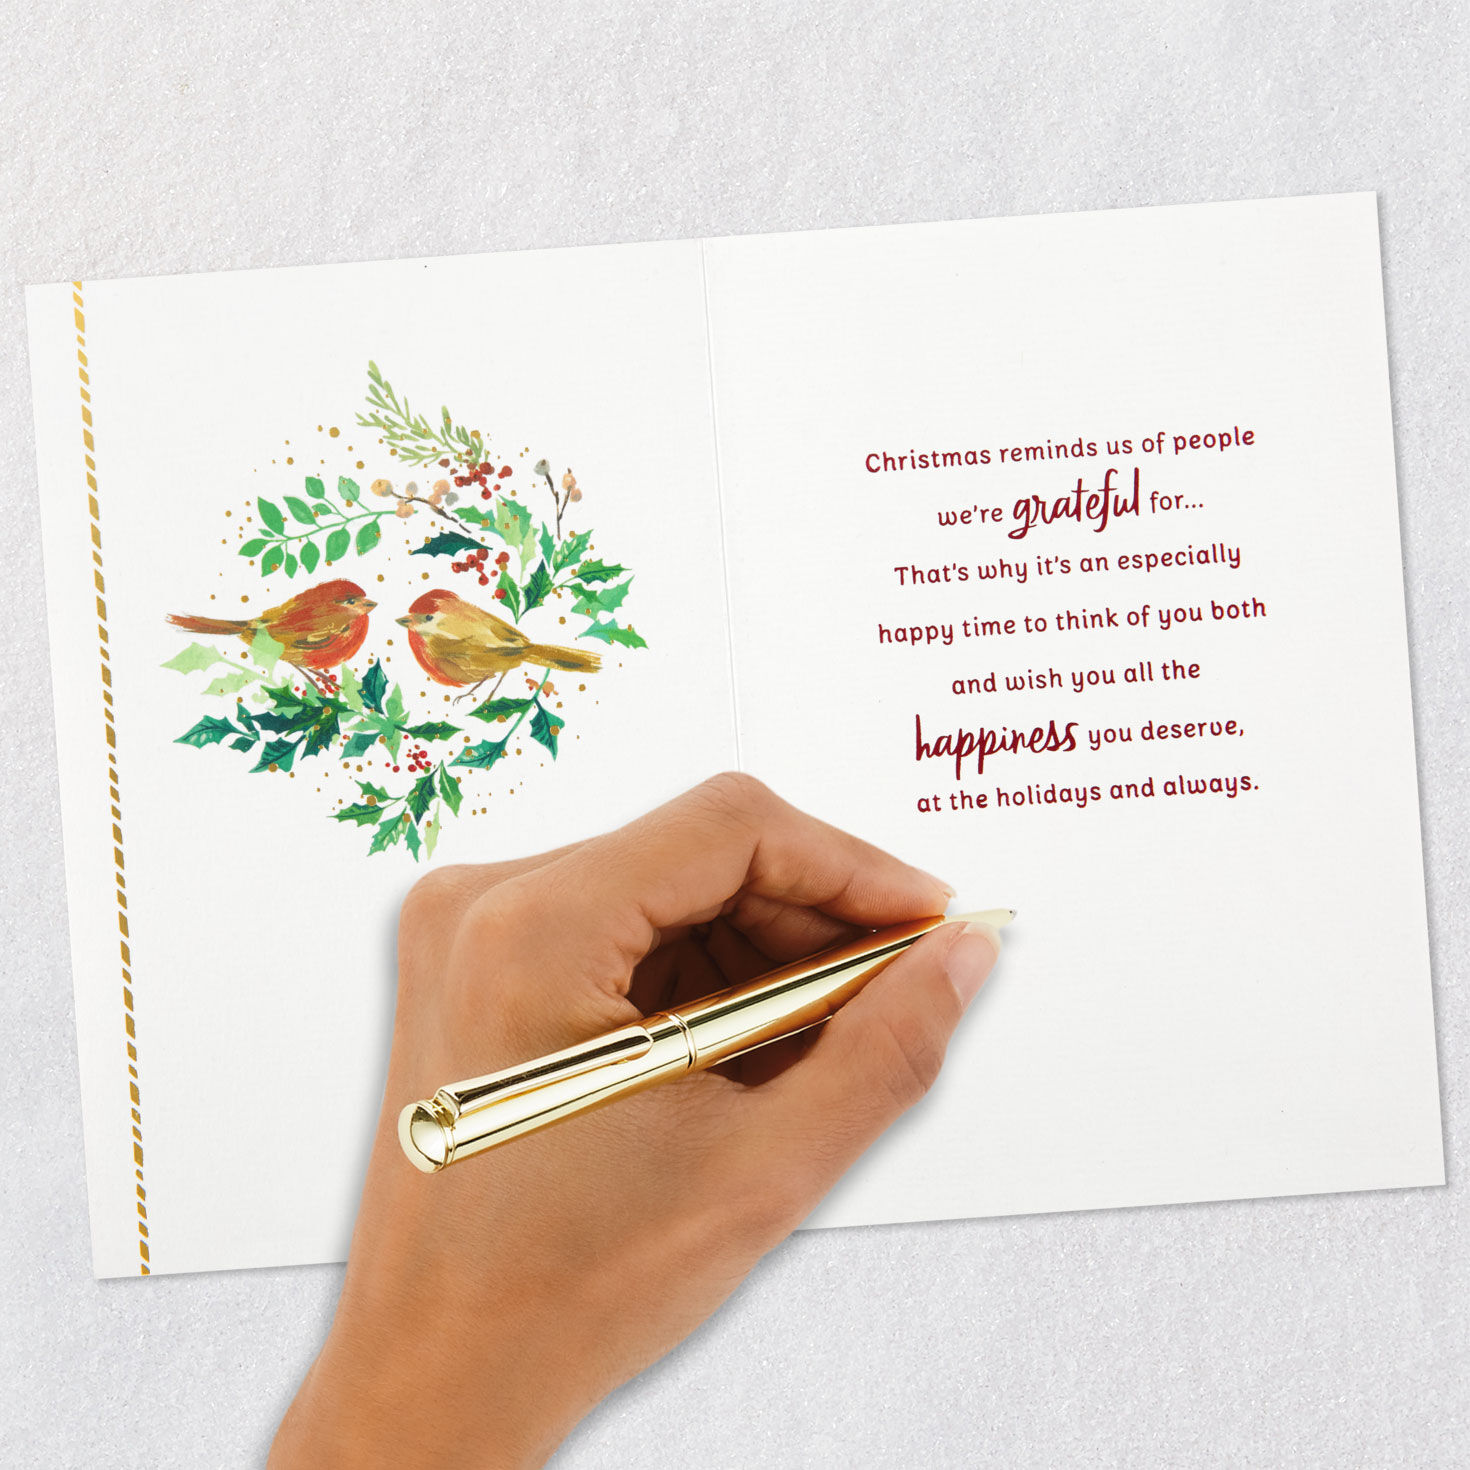 Christmas reminds us of people
we're grateful for...
That's why it's an especially
happy time to think of you both
and wish you all the
happiness you deserve,
at the holidays and always.